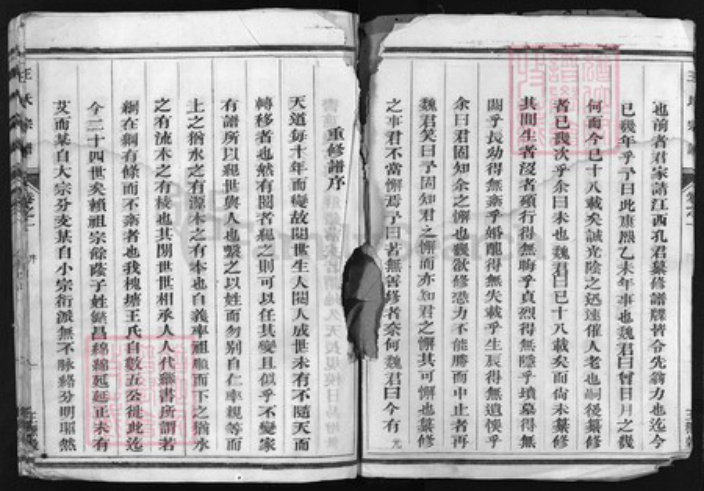 也前者君家請江西孔君纂修譜牒皆令先翁力也迄今
已幾年乎予曰此康熙乙未年事也魏君曰曾日月之幾
何而今已十八載矣誠光陰之迅速催人老也嗣後纂修
者已幾次乎余曰未也魏君曰已十八載矣而尚未纂修
其間生者沒者殯行得無晦乎貞烈得無隱乎墳墓得無
闕乎長幼得無紊乎婚配得無失載乎生辰得無遺悞乎
余曰君固知余之懈也幾欲修恐力不能勝而中止者再
魏君笑曰予固知君之懈而亦知君之懈其可懈也纂修
之事君不當懈焉予曰若無善修者奈何魏君曰今有
重修譜序
天道每十年而變故閱世生人閱人成世未有不隨天而
轉移者也然有閱者親之則可以任其變且似乎不變家
有譜所以親世與人也繫之以姓而勿别自仁率親等而
上之猶水之有源木之有本也自義率祖順而下之猶水
之有流木之有枝也其閱世世相承人人代繼書所謂若
網在綱有條而不紊者也我槐塘王氏自數五公徙此迄
今二十四世矣賴祖宗餘蔭子姓繁昌綿綿延延正未有
艾而某自大宗分支某自小宗衍派無不脉絡分明璀然
王氏宗譜
卷之一